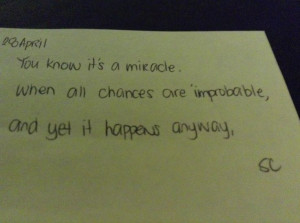 28 April
You know it's a miracle.
When all chances are improbable,
and yet it happens anyway,
SC